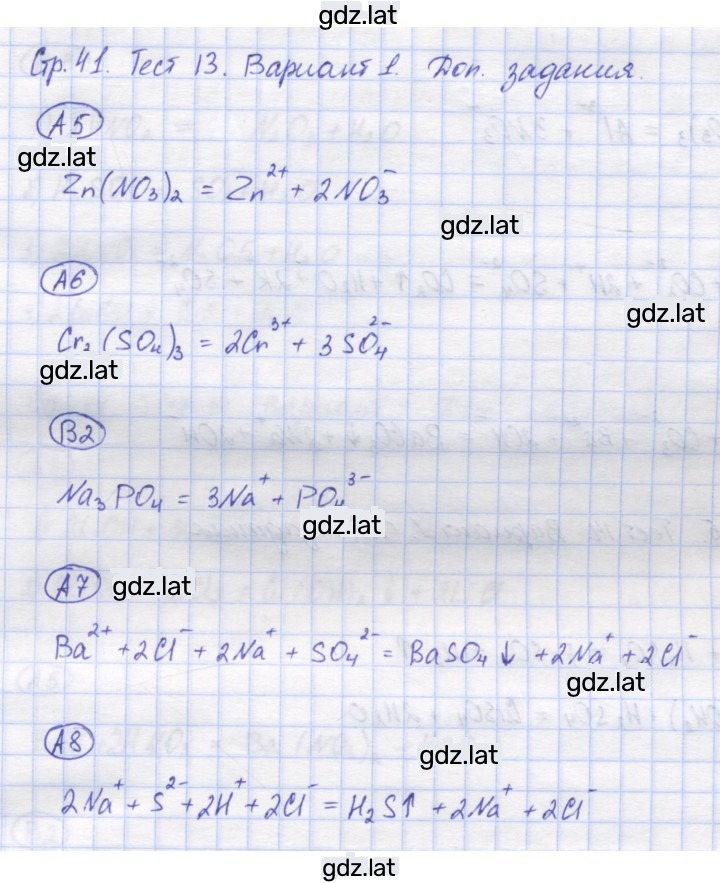 gdz.lat
Стр. 41. Тест 13. Вариант 1. Доп. задания.
A5
gdz.lat
Zn(NO₃)₂ = Zn²⁺ + 2NO₃⁻
gdz.lat
A6
gdz.lat
Cr₂(SO₄)₃ = 2Cr³⁺ + 3SO₄²⁻
gdz.lat
B2
Na₃PO₄ = 3Na⁺ + PO₄³⁻
gdz.lat
A7 gdz.lat
Ba²⁺ + 2Cl⁻ + 2Na⁺ + SO₄²⁻ = BaSO₄↓ + 2Na⁺ + 2Cl⁻
gdz.lat
A8
gdz.lat
2Na⁺ + S²⁻ + 2H⁺ + 2Cl⁻ = H₂S↑ + 2Na⁺ + 2Cl⁻
gdz.lat